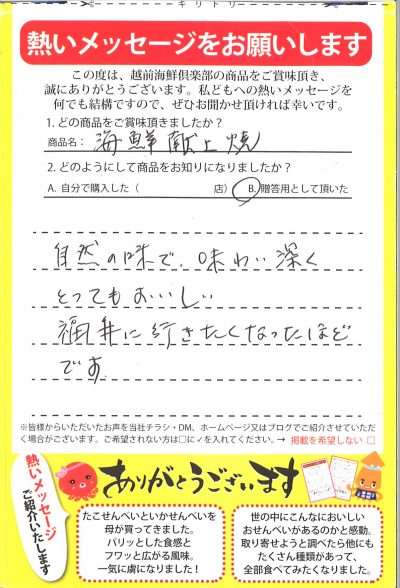 キリトリ
熱いメッセージをお願いします
この度は、越前海鮮倶楽部の商品をご賞味頂き、
誠にありがとうございます。私どもへの熱いメッセージを
何でも結構ですので、ぜひお聞かせ頂ければ幸いです。
1. どの商品をご賞味頂きましたか？
商品名： 海鮮献上焼
2. どのようにして商品をお知りになりましたか？
A. 自分で購入した（　　　　　店） B. 贈答用として頂いた
自然の味で、味わい深く
とってもおいしい
福井に行きたくなったほど
です
※皆様からいただいたお声を当社チラシ・DM、ホームページ又はブログでご紹介させていただ
く場合がございます。ご希望されない方は□に✓を入れてください。→ 掲載を希望しない □
熱いメッセージ
ご紹介いたします
ありがとうございます
たこせんべいといかせんべいを
母が買ってきました。
パリッとした食感と
フワッと広がる風味。
一気に虜になりました！
世の中にこんなにおいしい
おせんべいがあるのかと感動。
取り寄せようと調べたら他にも
たくさん種類があって、
全部食べてみたくなりました。